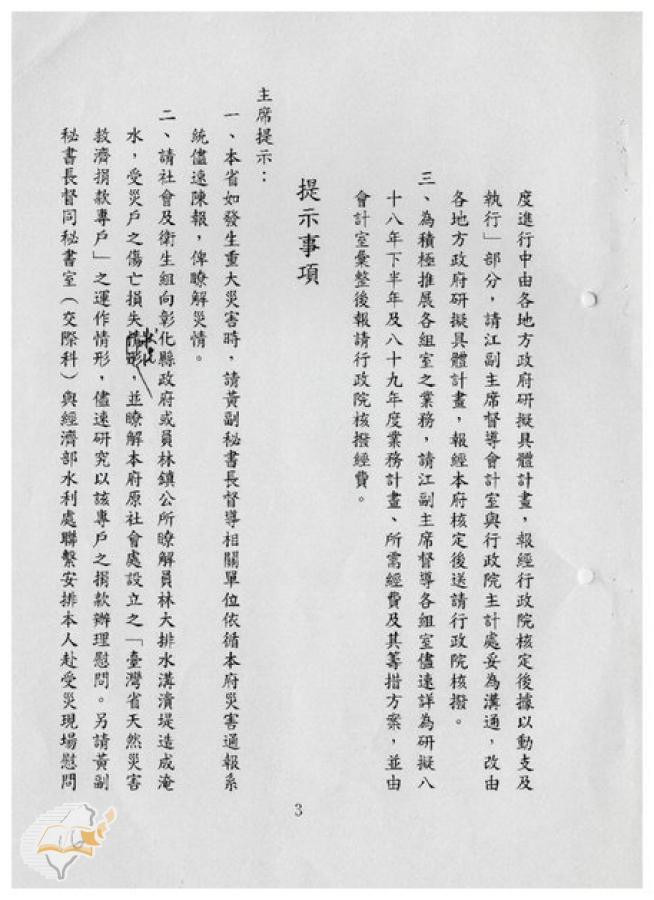 度進行中由各地方政府研擬具體計畫，報經行政院核定後據以動支及
執行」部分，請江副主席督導會計室與行政院主計處妥為溝通，改由
各地方政府研擬具體計畫，報經本府核定後送請行政院核撥。
三、為積極推展各組室之業務，請江副主席督導各組室儘速詳為研擬八
十八年下半年及八十九年度業務計畫、所需經費及其籌措方案，並由
會計室彙整後報請行政院核撥經費。
提示事項
主席提示：
一、本省如發生重大災害時，請黃副秘書長督導相關單位依循本府災害通報系
統儘速陳報，俾瞭解災情。
二、請社會及衛生組向彰化縣政府或員林鎮公所瞭解員林大排水溝潰堤造成淹
水，受災戶之傷亡損失情形，並瞭解本府原社會處設立之「臺灣省天然災害
救濟捐款專戶」之運作情形，儘速研究以該專戶之捐款辦理慰問。另請黃副
秘書長督同秘書室（交際科）與經濟部水利處聯繫安排本人赴受災現場慰問
3